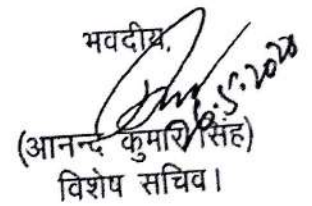 भवदीय,
20.5.2020
(आनन्द कुमार सिंह)
विशेष सचिव।